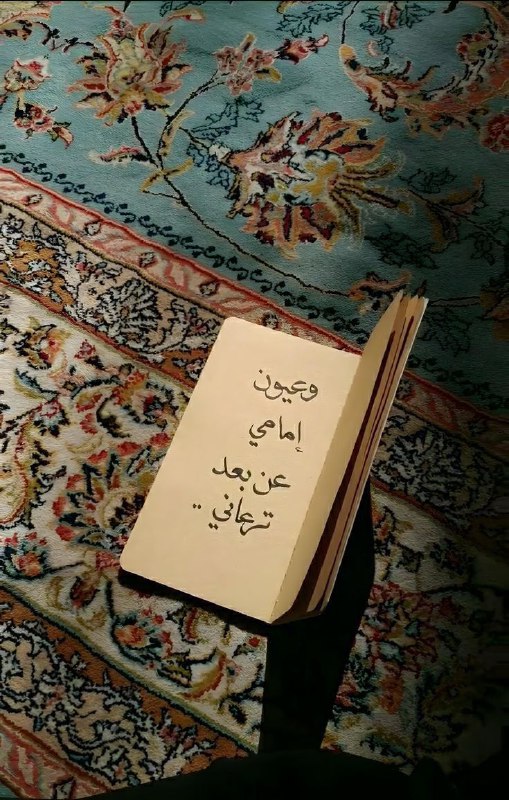 وعيون
إمامي
عن بعد
ترعاني ..